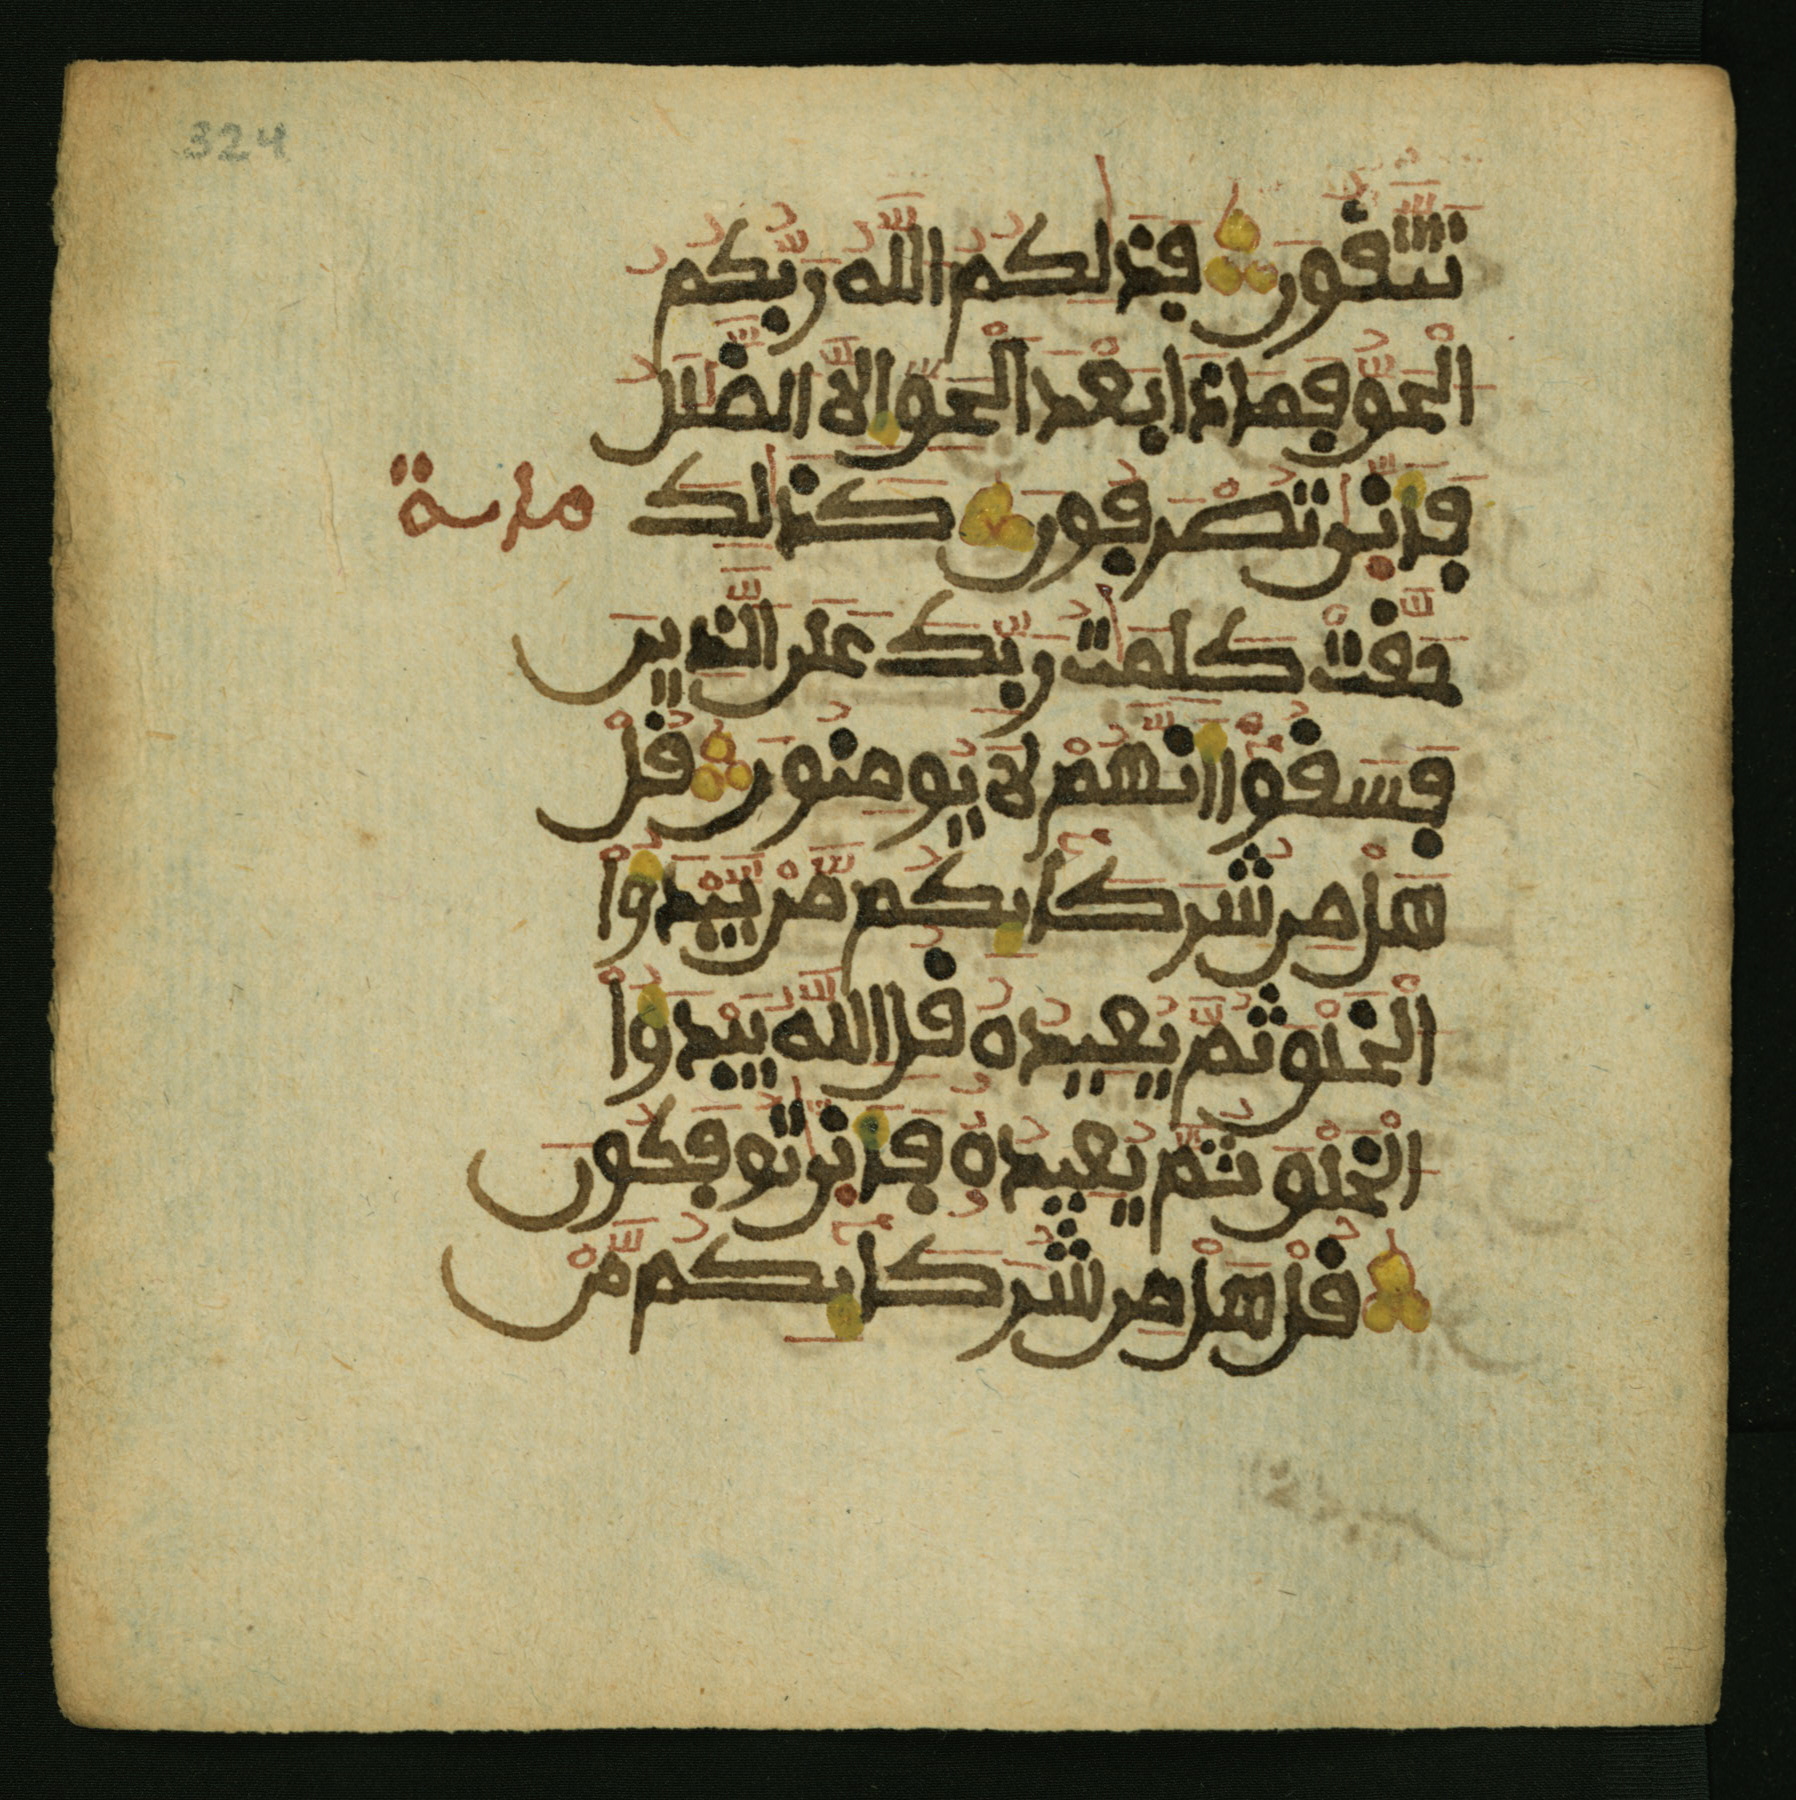 324
تَتَّقُونَ فَذَٰلِكُمُ اللَّهُ رَبُّكُمُ
الْحَقُّ فَمَاذَا بَعْدَ الْحَقِّ إِلَّا الضَّلَٰلُ
فَأَنّٜىٰ تُصْرَفُونَ كَذَٰلِكَ
حَقَّتْ كَلِمَٰتُ رَبِّكَ عَلَى الَّذِينَ
فَسَقُوٓاْ أَنَّهُمْ لَا يُومِنُونَ قُلْ
هَلْ مِن شُرَكَآئِكُم مَّنْ يَّبْدَؤُاْ
الْخَلْقَ ثُمَّ يُعِيدُهُ قُلِ اللَّهُ يَبْدَؤُاْ
الْخَلْقَ ثُمَّ يُعِيدُهُ فَأَنّٜىٰ تُوفَكُونَ
قُلْ هَلْ مِن شُرَكَآئِكُم مَّنْ